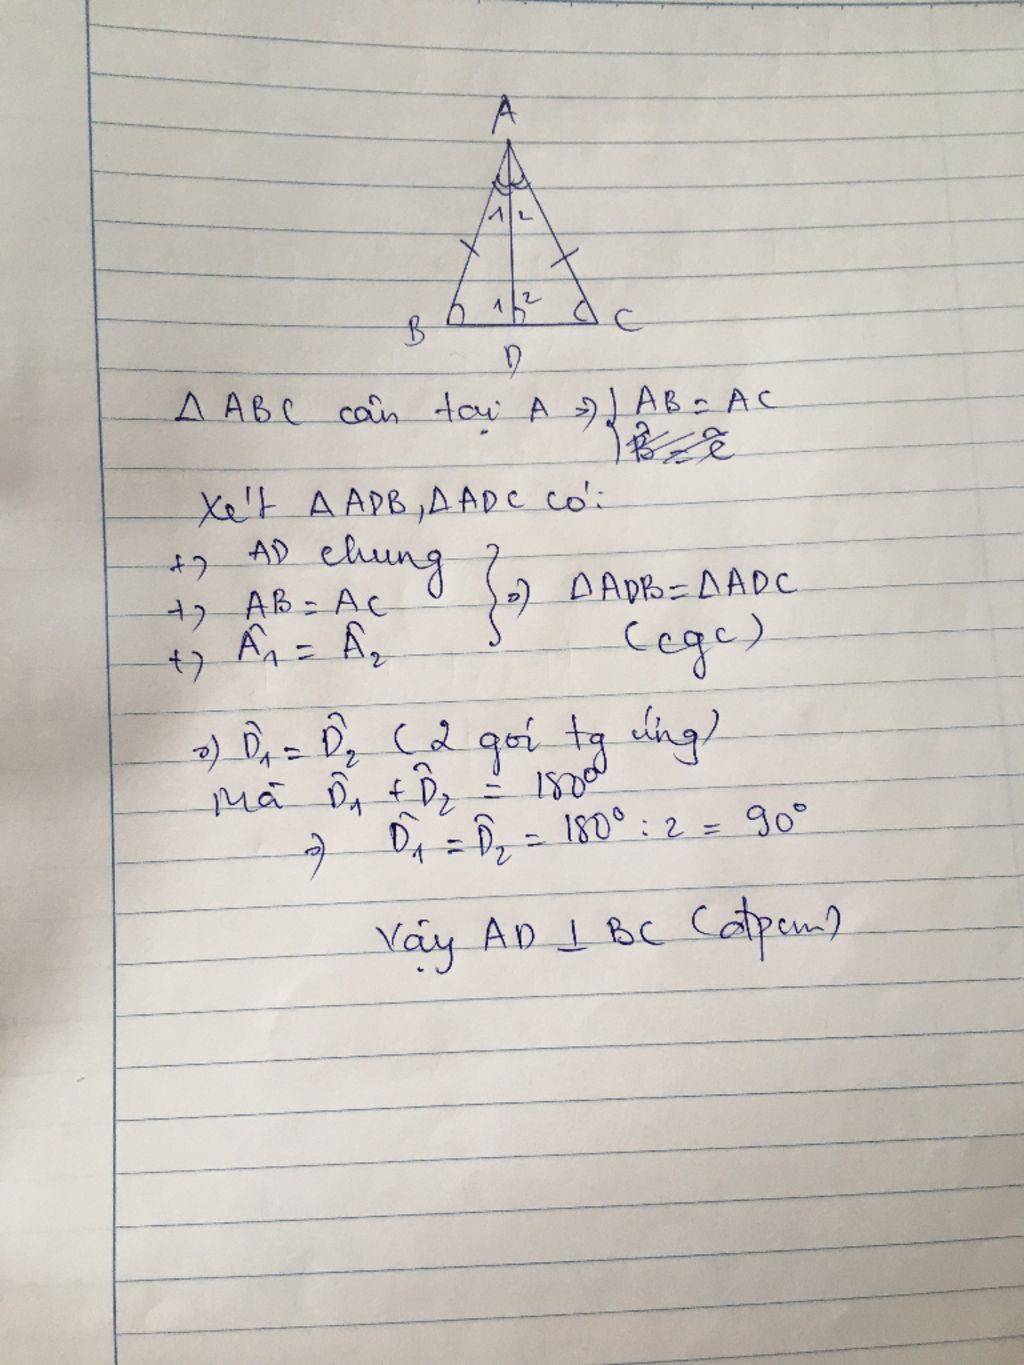 A
1 2
1 2
B C
D
Δ ABC cân tại A => { AB = AC
B̂ = Ĉ
Xét Δ ADB, Δ ADC có:
+) AD chung
+) AB = AC } => ΔADB = ΔADC
+) Â₁ = Â₂ (cgc)
=> D̂₁ = D̂₂ (2 goí tg ứng)
Mà D̂₁ + D̂₂ = 180°
=> D̂₁ = D̂₂ = 180° : 2 = 90°
Vậy AD ⊥ BC (đpcm)